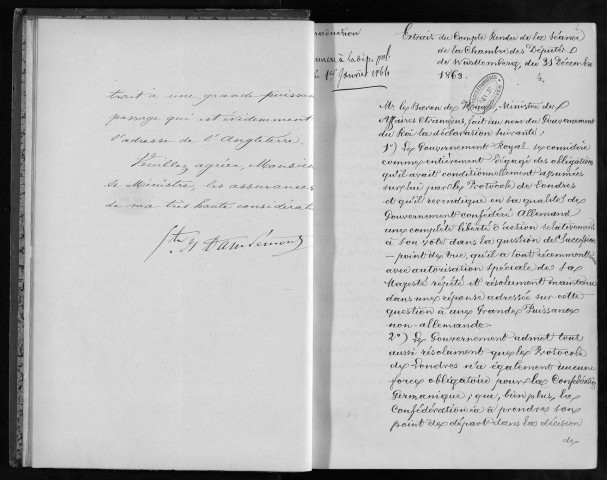 trait à une grande puissan
passage qui est évidemment
l'adresse de l'Angleterre.
Veuillez agréer, Monsieu
le Ministre, les assurances
de ma très haute considérat
Traduction
le 14 Janvier 1864
Extrait du Compte Rendu de la Séance
de la Chambre des Députés
de Württemberg, du 31 Décembre
1863.
Mr. le Baron de Hügel, Ministre des
Affaires Etrangères, fait au nom du Gouvernement
du Roi la déclaration suivante:
1°) Le Gouvernement Royal se considère
comme entièrement dégagé des obligations
qu'il avait conditionnellement assumées
sur lui par le Protocole de Londres
et qu'il revendique en sa qualité de
Gouvernement confédéré Allemand
une complète liberté d'action relativement
à son vote dans la question de Succession
— point de vue, qu'il a tout récemment
avec autorisation spéciale de Sa
Majesté répété et résolument maintenu
dans une réponse adressée sur cette
question à une Grande Puissance
non-allemande.
2°) Le Gouvernement admet tout
aussi résolument que le Protocole
de Londres n'a également aucune
force obligatoire pour la Confédération
Germanique; que, bien plus, la
Confédération a à prendre son
point de départ dans la décision
de